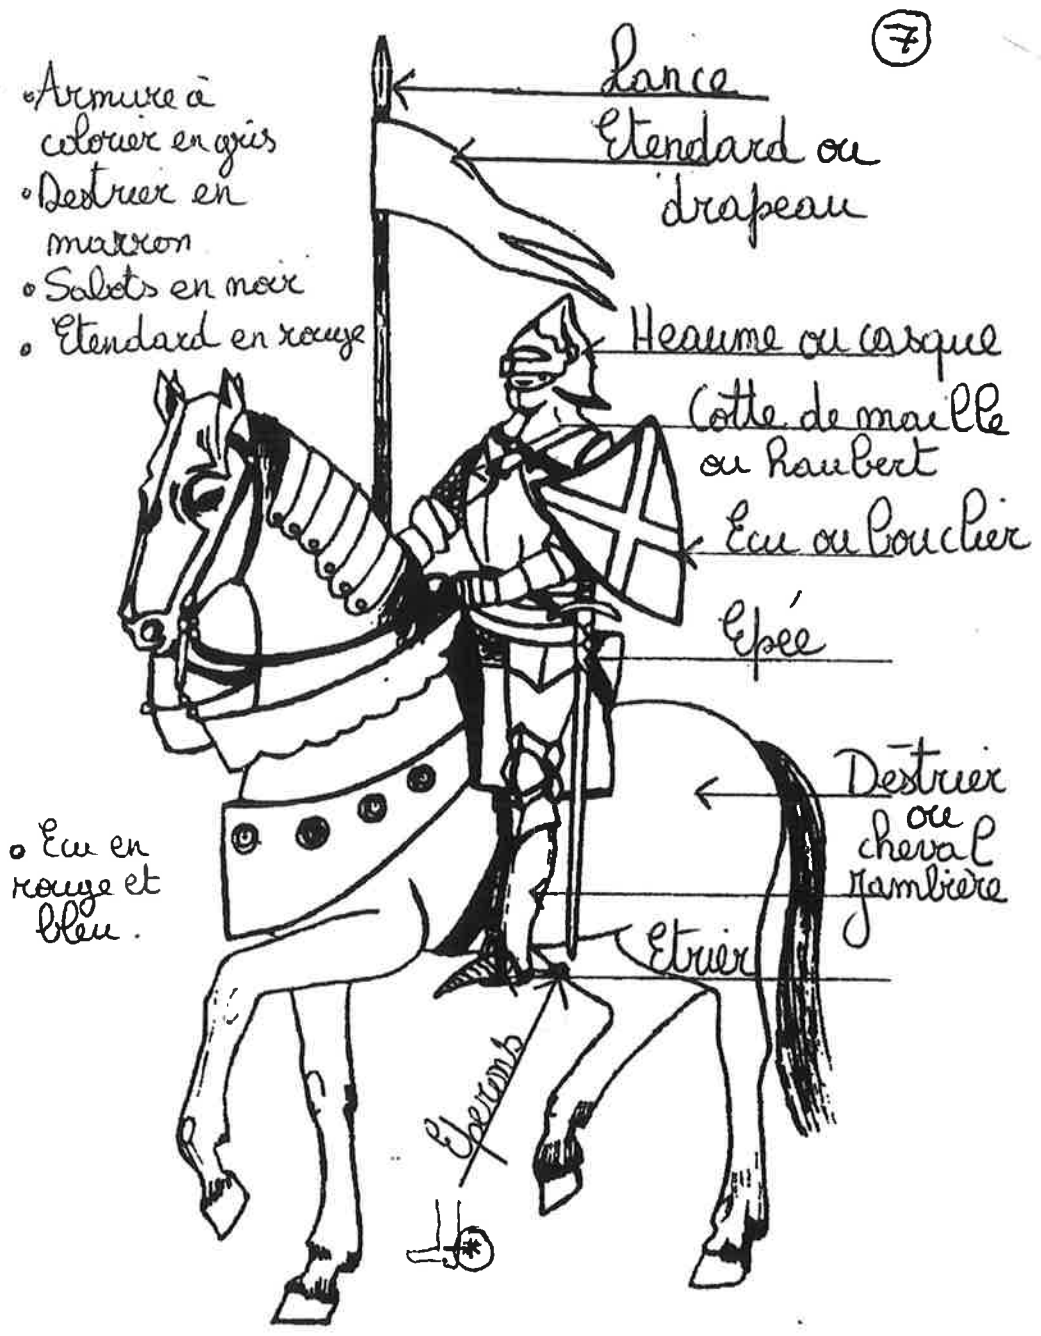 7
• Armure à
colorier en gris
• Destrier en
marron
• Sabots en noir
• Etendard en rouge
Lance
Etendard ou
drapeau
Heaume ou casque
Cotte de maille
ou haubert
Ecu ou bouclier
Epée
Destrier
ou
cheval
Jambière
Etrier
Eperons
• Ecu en
rouge et
bleu.